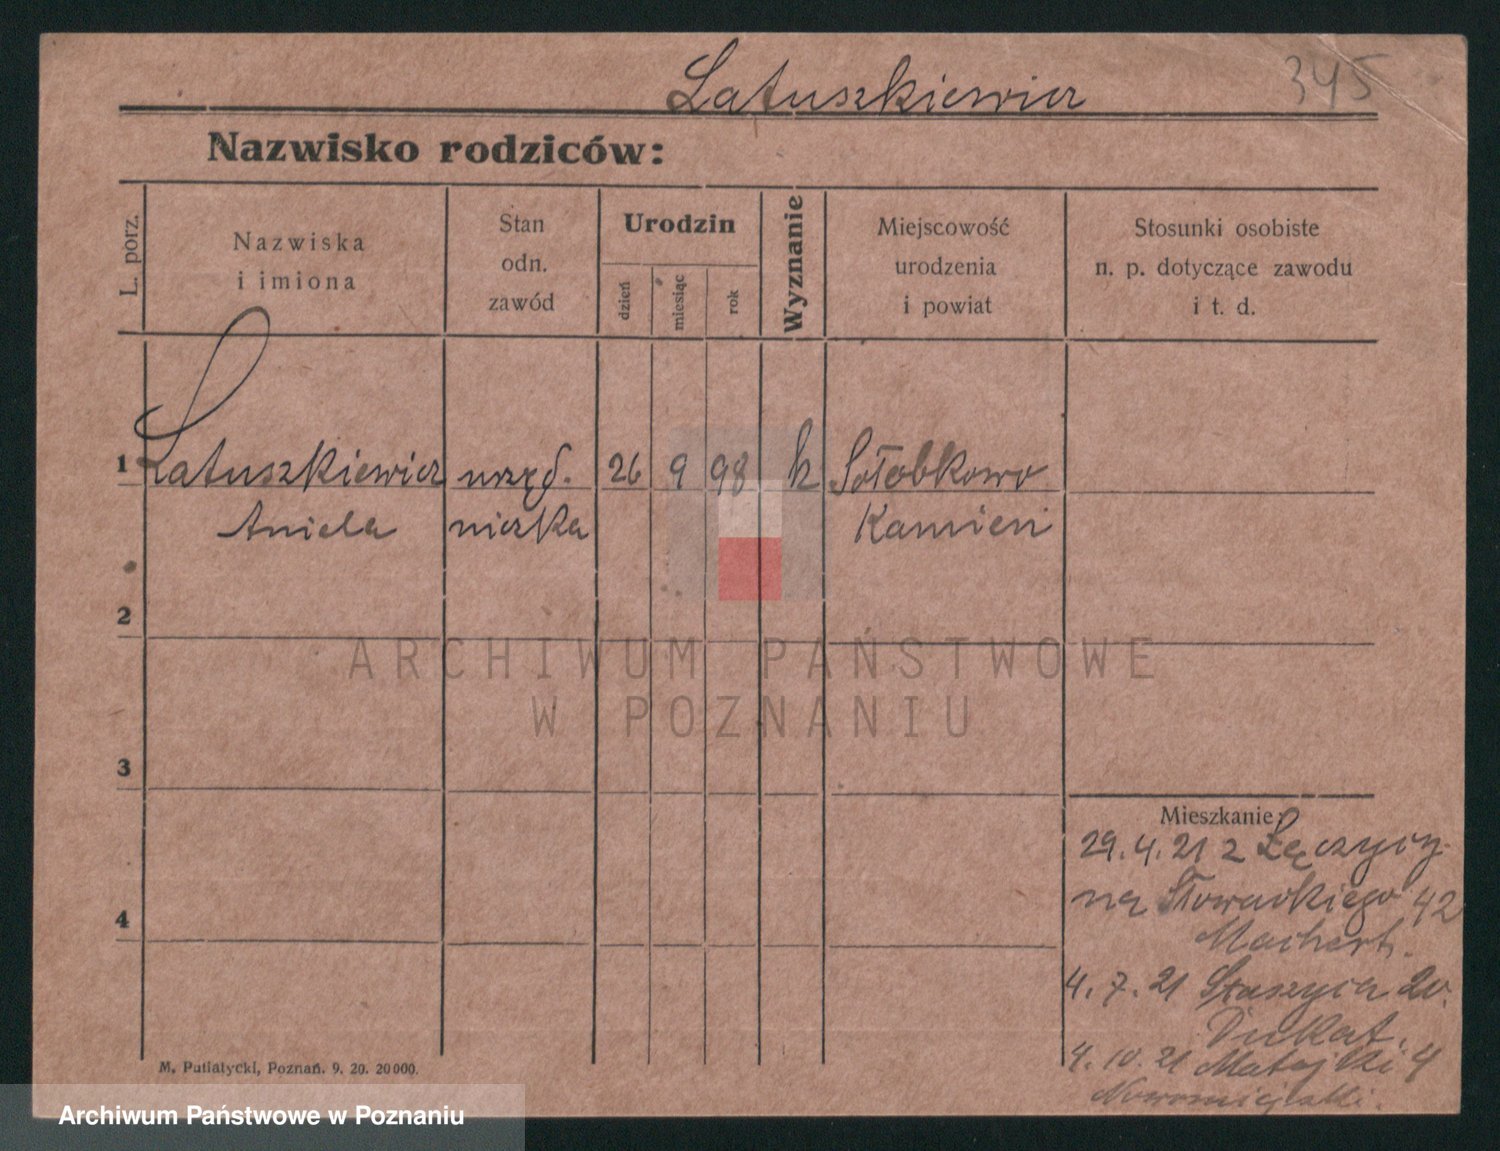 Latuszkiewicz 345
Nazwisko rodziców:
L. porz.
Nazwiska
i imiona
Stan
odn.
zawód
Urodzin
dzień
miesiąc
rok
Wyznanie
Miejscowość
urodzenia
i powiat
Stosunki osobiste
n. p. dotyczące zawodu
i t. d.
1 Latuszkiewicz urzęd. 26 9 98 k Sołobkowo
Aniela niczka Kamień
2
3
4
ARCHIWUM PAŃSTWOWE
W POZNANIU
Mieszkanie:
29.4.21 z Łęczycy
na Słowackiego 42
4.7.21 Staszyca 20.
Dukat.
4.10.21 Matejki 4
M. Putiatycki, Poznań. 9. 20. 20000.
Archiwum Państwowe w Poznaniu